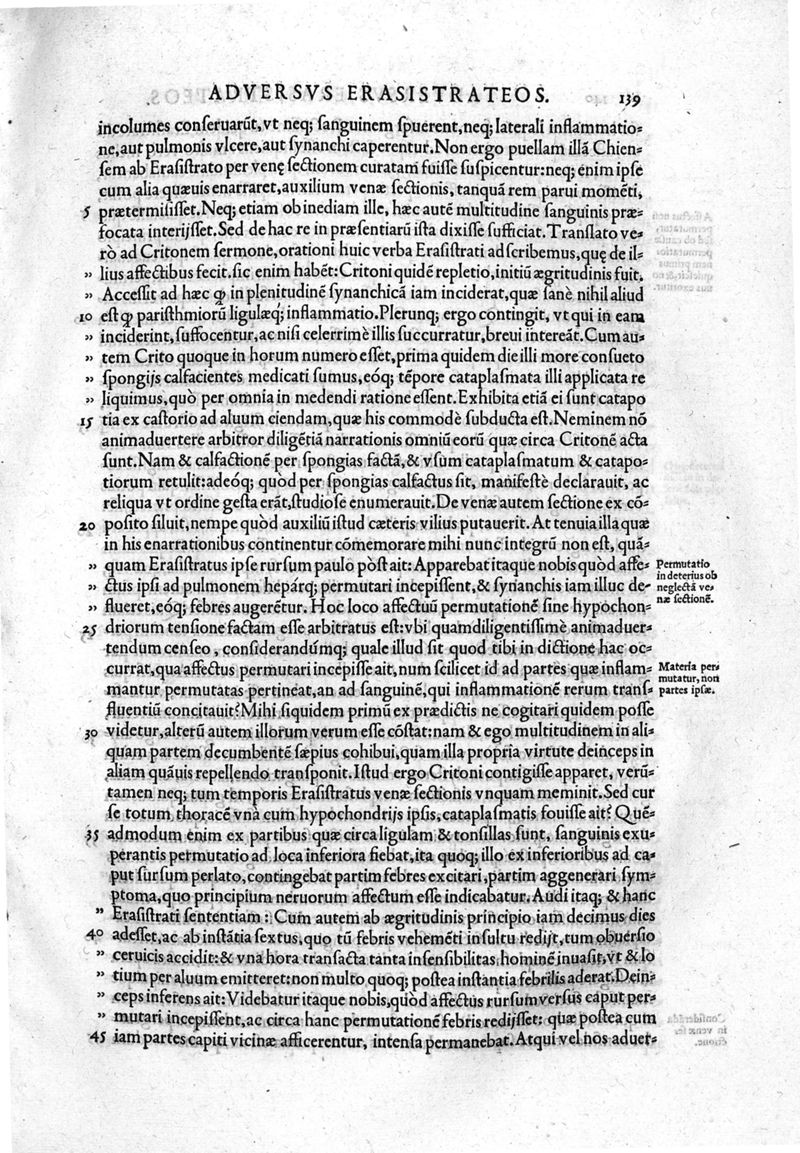 ADVERSVS ERASISTRATEOS. 139
incolumes conſeruarūt, vt neq; ſanguinem ſpuerent, neq; laterali inflammatio-
ne, aut pulmonis vlcere, aut ſynanchi caperentur. Non ergo puellam illā Chien-
ſem ab Eraſiſtrato per venę ſectionem curatam fuiſſe ſuſpicentur: neq; enim ipſe
cum alia quæuis enarraret, auxilium venæ ſectionis, tanquā rem parui momēti,
5 prætermiſiſſet. Neq; etiam ob inediam ille, hæc autē multitudine ſanguinis præ-
focata interijſſet. Sed de hac re in præſentiarū iſta dixiſſe ſufficiat. Tranſlato ve-
rò ad Critonem ſermone, orationi huic verba Eraſiſtrati adſcribemus, quę de il-
„ lius affectibus fecit. ſic enim habēt: Critoni quidē repletio, initiū ægritudinis fuit.
„ Acceſſit ad hæc ꝙ in plenitudinē ſynanchicā iam inciderat, quæ ſanè nihil aliud
10 eſt ꝙ pariſthmiorū ligulæq; inflammatio. Plerunq; ergo contingit, vt qui in eam
„ inciderint, ſuffocentur, ac niſi celerrimè illis ſuccurratur, breui intereāt. Cum au-
„ tem Crito quoque in horum numero eſſet, prima quidem die illi more conſueto
„ ſpongijs calfacientes medicati ſumus, eóq; tēpore cataplaſmata illi applicata re
„ liquimus, quò per omnia in medendi ratione eſſent. Exhibita etiā ei ſunt catapo
15 tia ex caſtorio ad aluum ciendam, quæ his commodè ſubducta eſt. Neminem nō
animaduertere arbitror diligētiā narrationis omniū eorū quæ circa Critonē acta
ſunt. Nam & calfactionē per ſpongias factā, & vſum cataplaſmatum & catapo-
tiorum retulit: adeóq; quòd per ſpongias calfactus ſit, manifeſtè declarauit, ac
reliqua vt ordine geſta erāt, ſtudioſe enumerauit. De venæ autem ſectione ex cō-
20 poſito ſiluit, nempe quòd auxiliū iſtud cæteris vilius putauerit. At tenuia illa quæ
in his enarrationibus continentur cōmemorare mihi nunc integrū non eſt, quā-
„ quam Eraſiſtratus ipſe rurſum paulo pòſt ait: Apparebat itaque nobis quòd affe-
„ ctus ipſi ad pulmonem hepárq; permutari incepiſſent, & ſynanchis iam illuc de-
„ flueret, eóq; febres augerētur. Hoc loco affectuū permutationē ſine hypochon-
25 driorum tenſione factam eſſe arbitratus eſt: vbi quamdiligentiſſimè animaduer-
tendum cenſeo, conſiderandúmq; quale illud ſit quod tibi in dictione hac oc-
currat, qua affectus permutari incepiſſe ait, num ſcilicet id ad partes quæ inflam-
mantur permutatas pertineat, an ad ſanguinē, qui inflammationē rerum tranſ-
fluentiū concitauit? Mihi ſiquidem primū ex prædictis ne cogitari quidem poſſe
30 videtur, alterū autem illorum verum eſſe cōſtat: nam & ego multitudinem in ali-
quam partem decumbentē ſæpius cohibui, quam illa propria virtute deinceps in
aliam quāuis repellendo tranſponit. Iſtud ergo Critoni contigiſſe apparet, verū-
tamen neq; tum temporis Eraſiſtratus venæ ſectionis vnquam meminit. Sed cur
ſe totum thoracē vnà cum hypochondrijs ipſis, cataplaſmatis fouiſſe ait? Quē-
35 admodum enim ex partibus quæ circa ligulam & tonſillas ſunt, ſanguinis exu-
perantis permutatio ad loca inferiora fiebat, ita quoq; illo ex inferioribus ad ca-
put ſurſum perlato, contingebat partim febres excitari, partim aggenerari ſym-
ptoma, quo principium neruorum affectum eſſe indicabatur. Audi itaq; & hanc
„ Eraſiſtrati ſententiam: Cum autem ab ægritudinis principio iam decimus dies
40 adeſſet, ac ab inſtātia ſextus, quo tū febris vehemēti inſultu redijt, tum obuerſio
„ ceruicis accidit: & vna hora tranſacta tanta inſenſibilitas hominē inuaſit, vt & lo
„ tium per aluum emitteret: non multo quoq; poſtea inſtantia febrilis aderat. Dein-
„ ceps inferens ait: Videbatur itaque nobis, quòd affectus rurſum verſus caput per-
„ mutari incepiſſent, ac circa hanc permutationē febris redijſſet: quæ poſtea cum
45 iam partes capiti vicinæ afficerentur, intenſa permanebat. Atqui vel nos aduer-
Permutatio
in deterius ob
neglectā ve-
næ ſectionē.
Materia per-
mutatur, non
partes ipſæ.